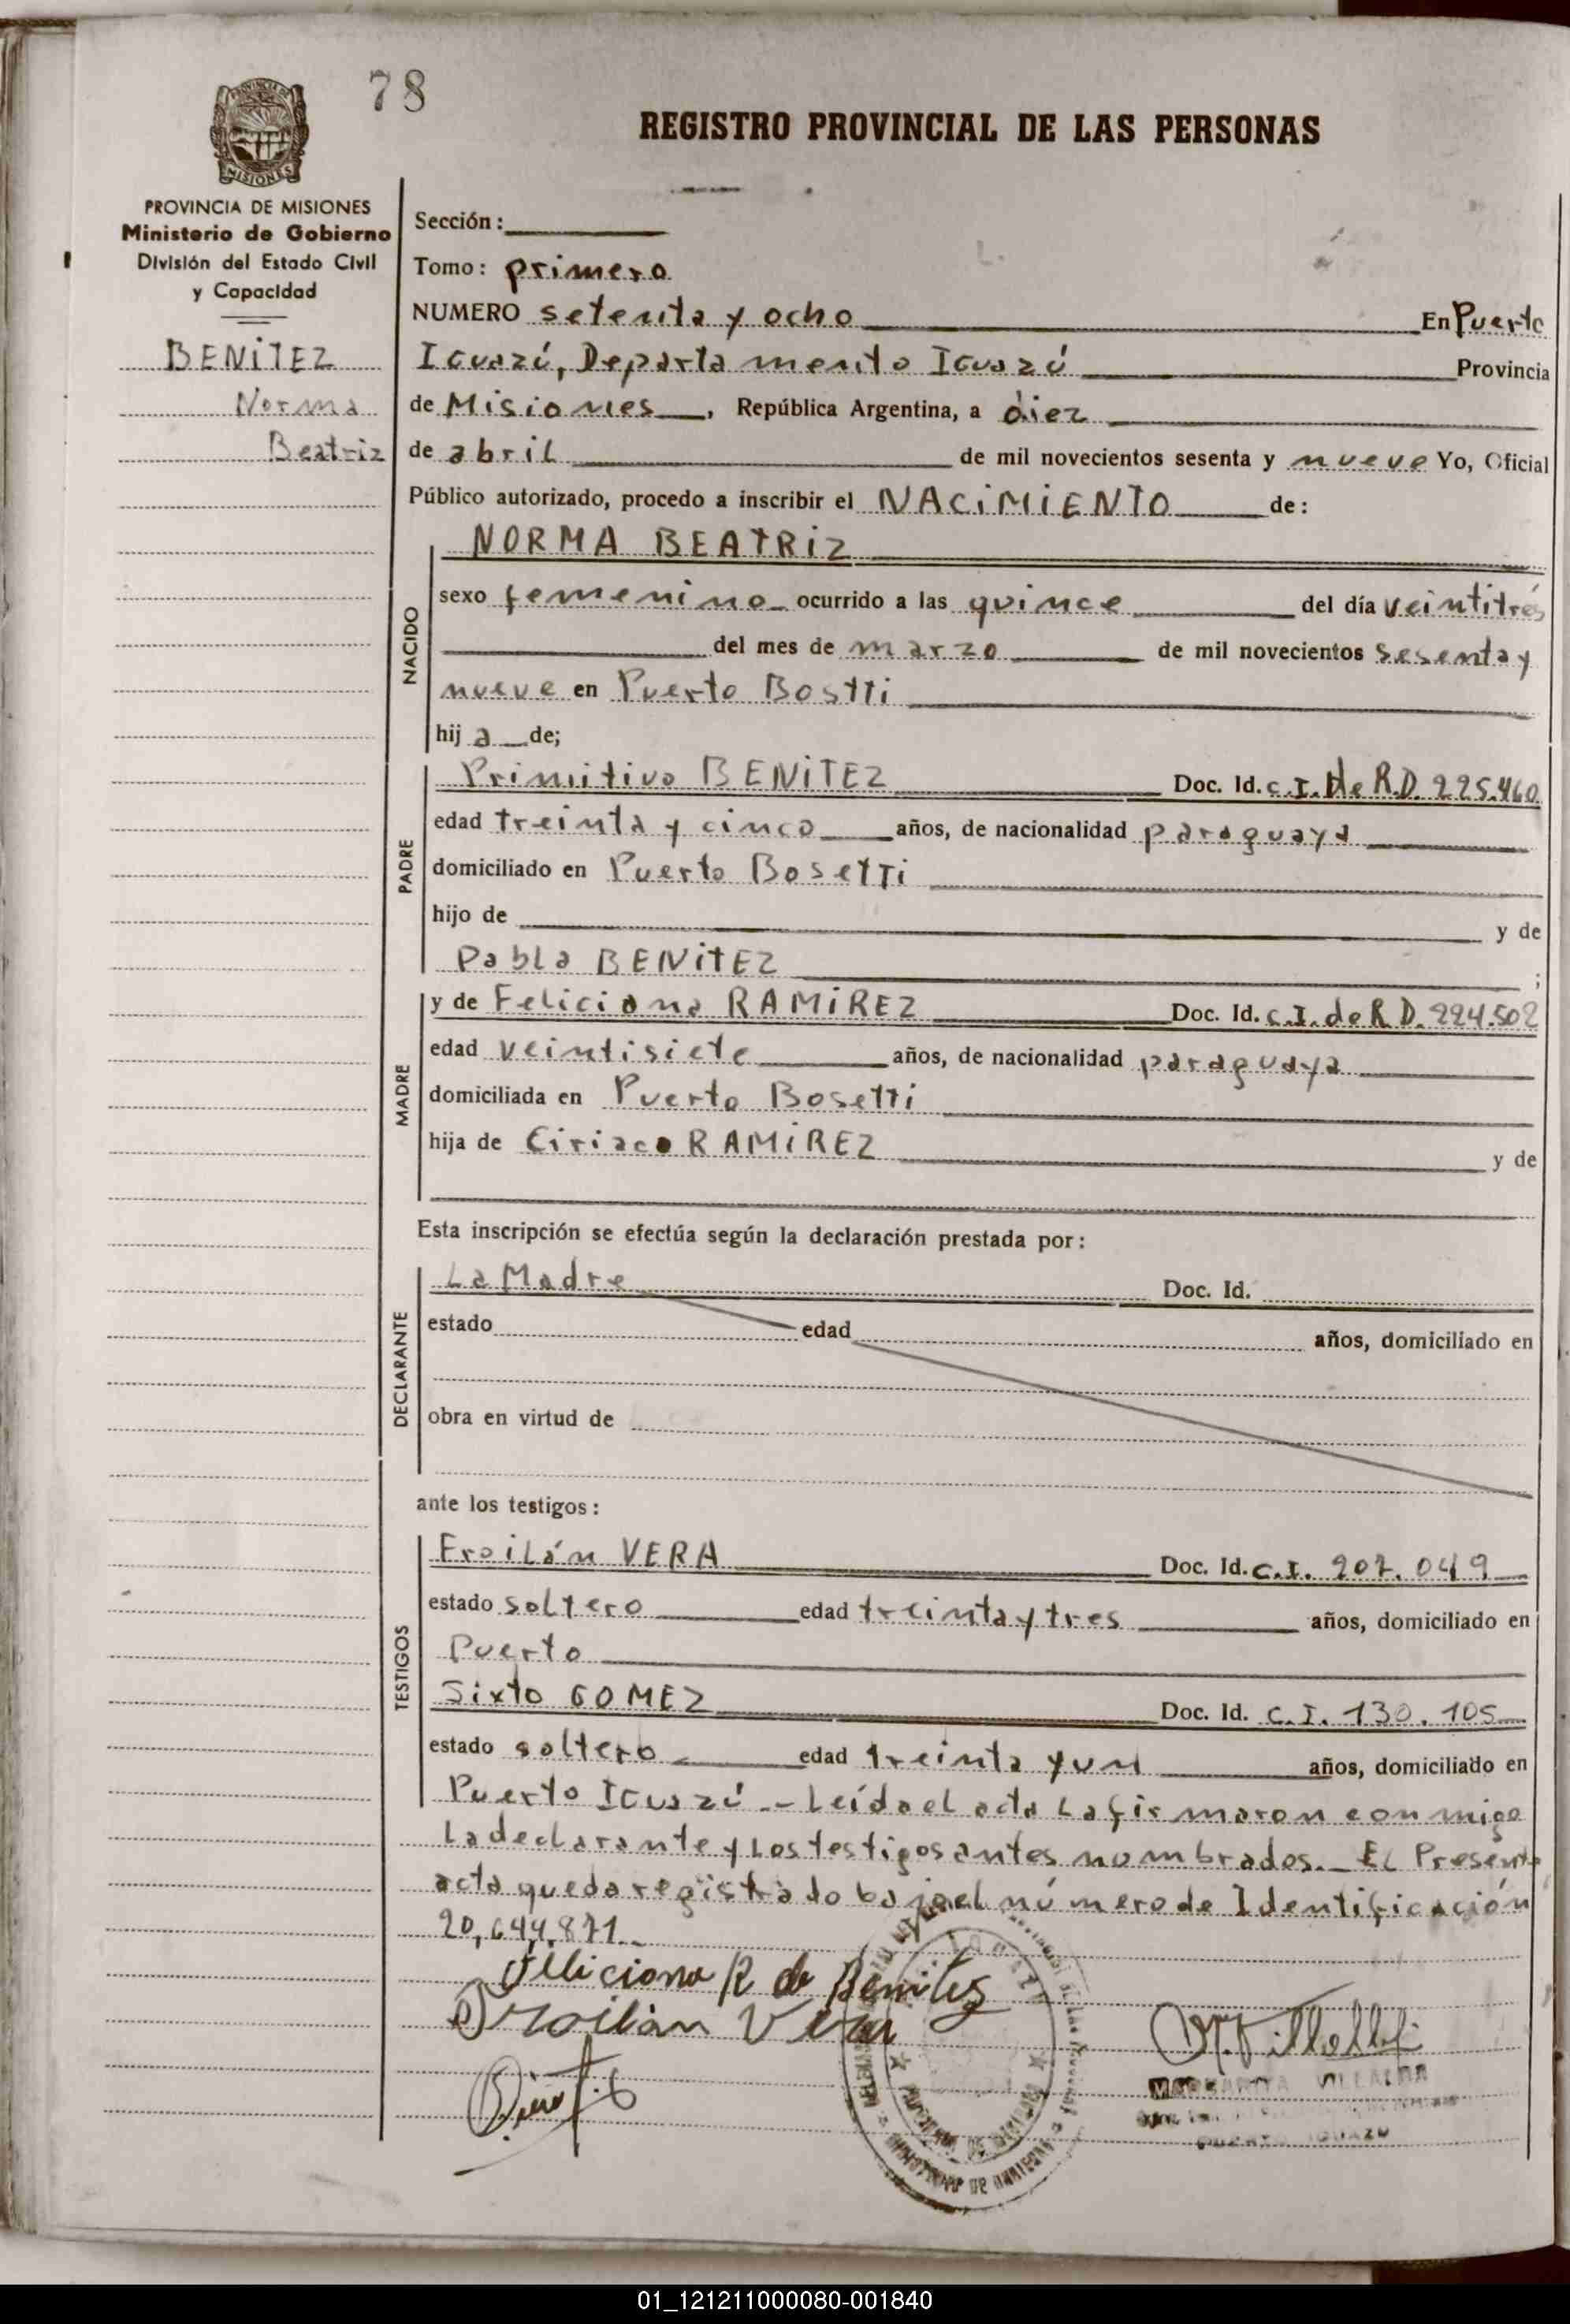 78
REGISTRO PROVINCIAL DE LAS PERSONAS
MISIONES
PROVINCIA DE MISIONES
Ministerio de Gobierno
División del Estado Civil
y Capacidad
BENITEZ
Norma
Beatriz
Sección:
Tomo: primero
NUMERO setenta y ocho En Puerto
Iguazú, Departamento Iguazú Provincia
de Misiones, República Argentina, a diez
de abril de mil novecientos sesenta y nueve Yo, Oficial
Público autorizado, procedo a inscribir el NACIMIENTO de:
NACIDO
NORMA BEATRIZ
sexo femenino ocurrido a las quince del día veintitrés
del mes de marzo de mil novecientos sesenta y
nueve en Puerto Bostti
hij a de;
PADRE
Primitivo BENITEZ Doc. Id. C.I. de R.D. 225.460
edad treinta y cinco años, de nacionalidad paraguaya
domiciliado en Puerto Bosetti
hijo de y de
Pabla BENITEZ ;
MADRE
y de Feliciana RAMIREZ Doc. Id. C.I. de R.D. 224.502
edad veintisiete años, de nacionalidad paraguaya
domiciliada en Puerto Bosetti
hija de Ciriaco RAMIREZ y de
Esta inscripción se efectúa según la declaración prestada por:
DECLARANTE
La Madre Doc. Id.
estado edad años, domiciliado en
obra en virtud de
ante los testigos:
TESTIGOS
Froilán VERA Doc. Id. C.I. 207.049
estado soltero edad treinta y tres años, domiciliado en
Puerto
Sixto GOMEZ Doc. Id. C.I. 130.105
estado soltero edad treinta y un años, domiciliado en
Puerto Iguazú.- Leída el acta la firmaron conmigo
la declarante y los testigos antes nombrados._ El Presente
acta queda registrado bajo el número de Identificación
20,644,871._
Feliciana R de Benitez
Froilan Vera
MARGARITA VILLALBA
PUERTO IGUAZU
01_121211000080-001840